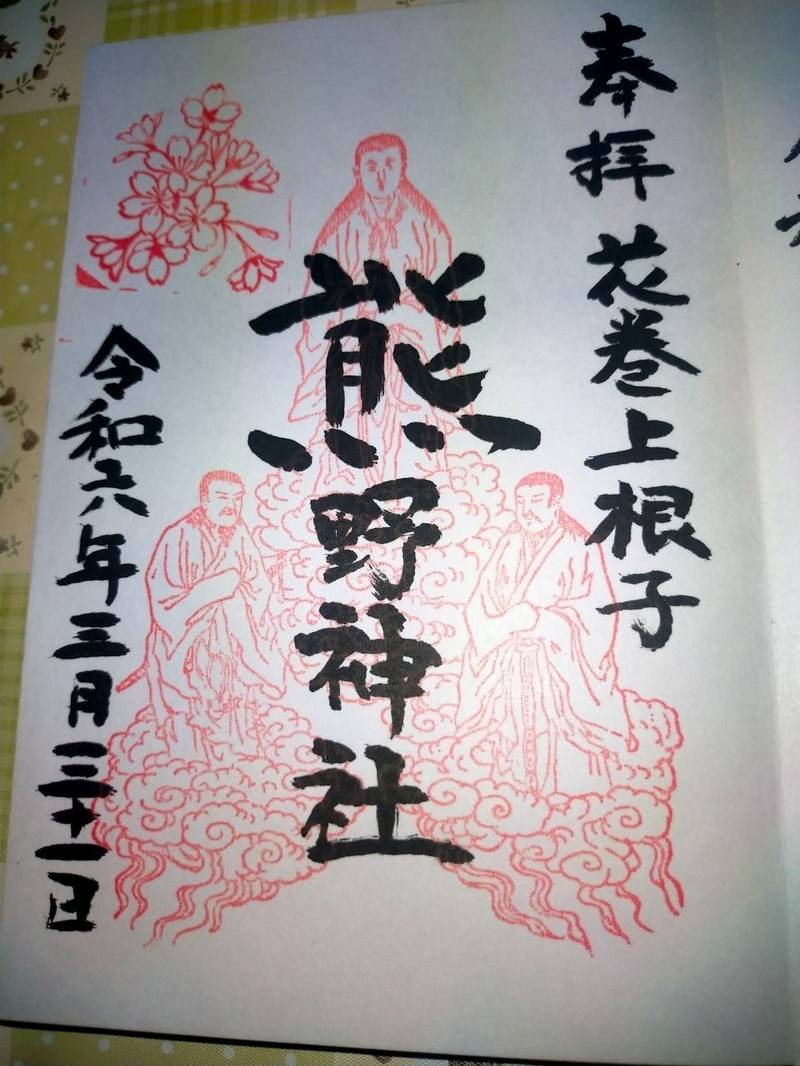 奉拝 花巻上根子
熊野神社
令和六年三月三十一日